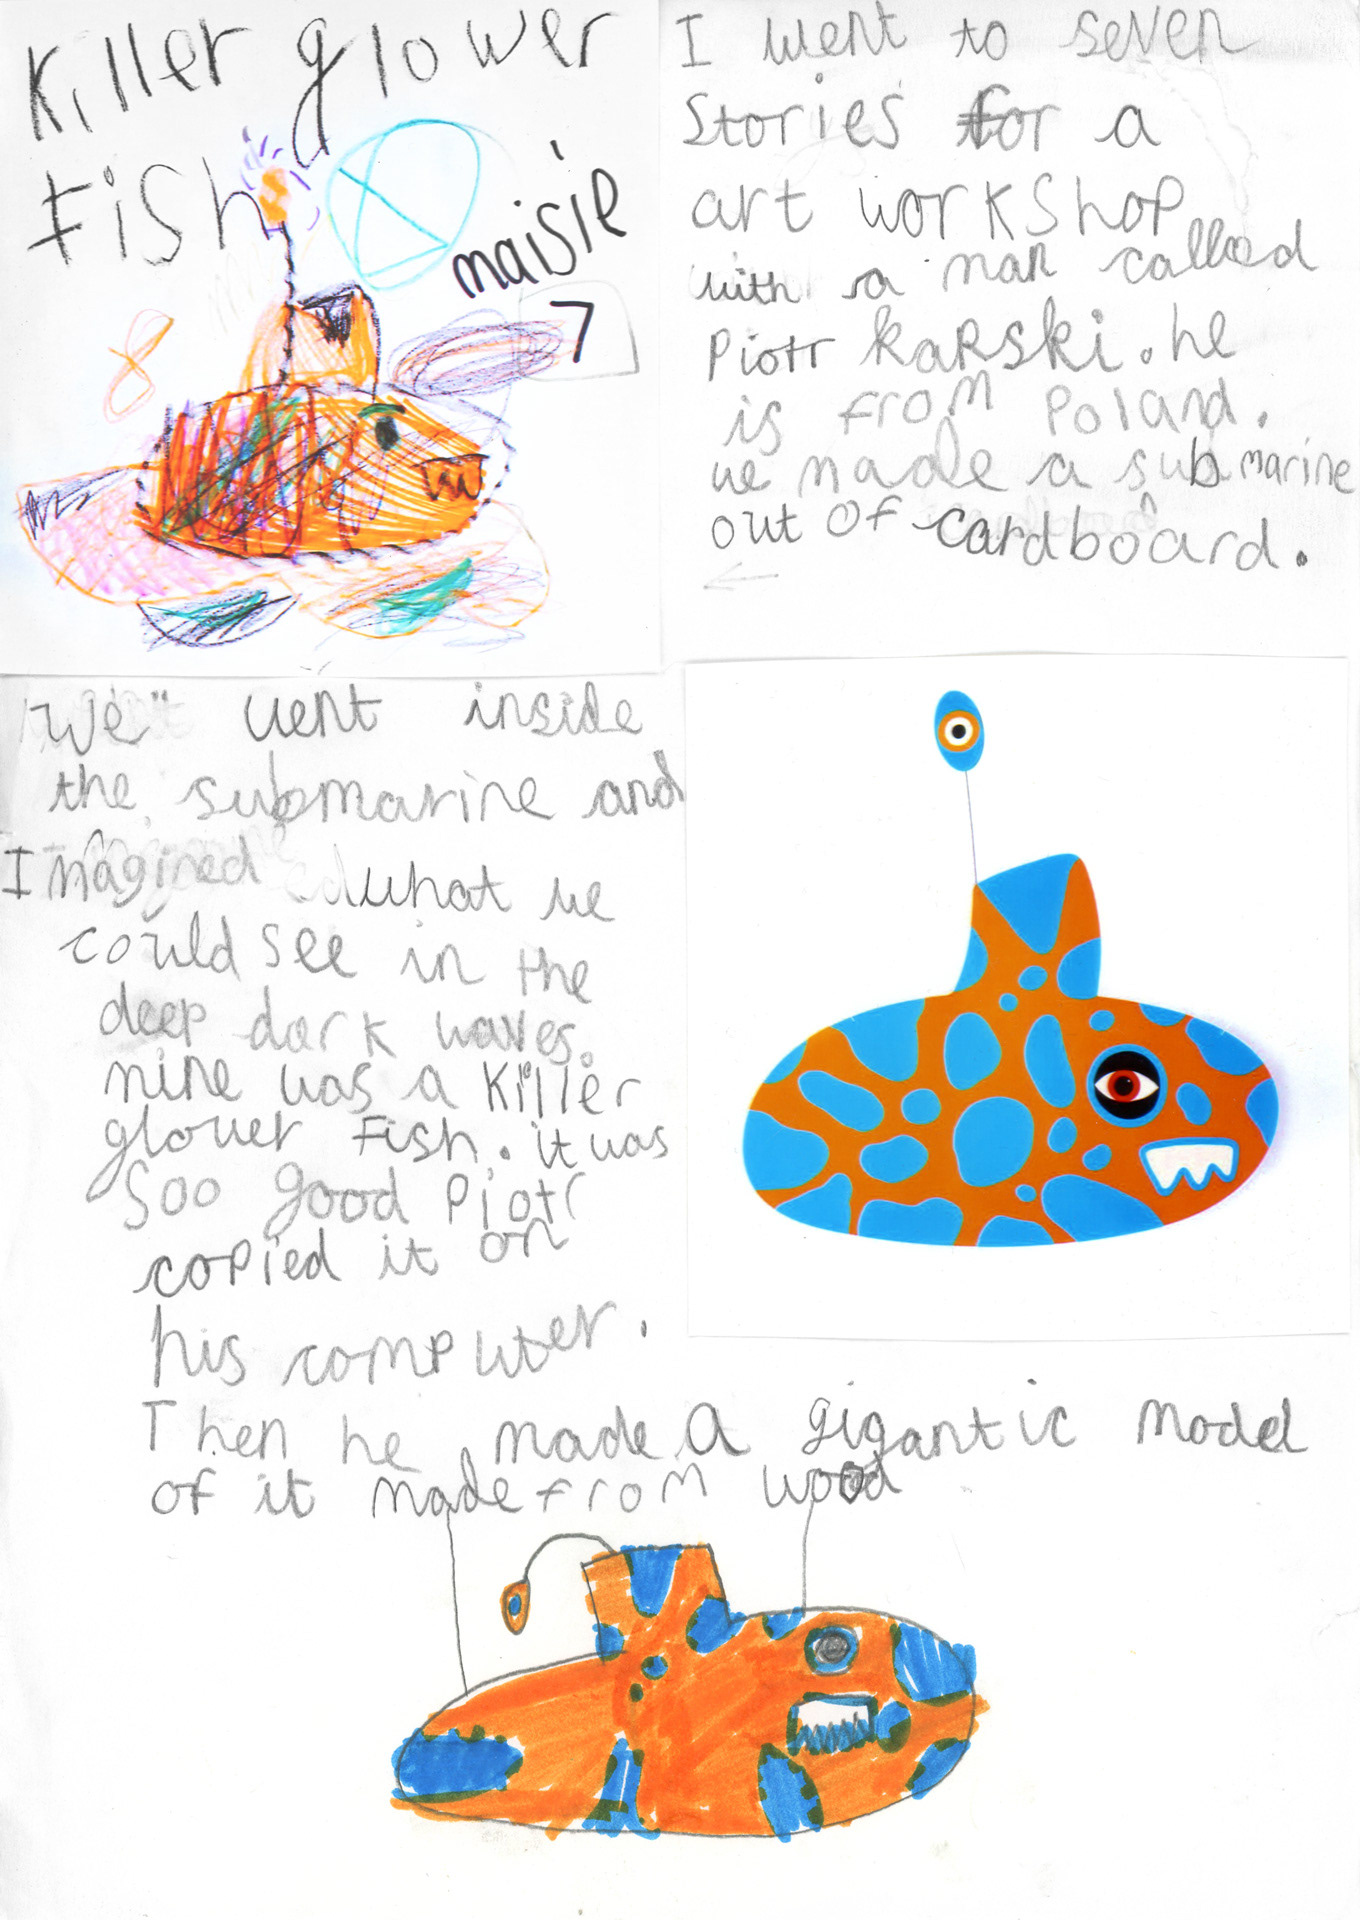 Killer glower
Fish
maisie
7
I went to seven
Stories for a
art workshop
with a man called
Piotr karski. he
is from Poland.
we made a submarine
out of cardboard.
We went inside
the submarine and
Imagined what we
could see in the
deep dark waves.
mine was a Killer
glower Fish. it was
Soo good Piotr
copied it on
his computer.
Then he made A gigantic model
of it made from wood